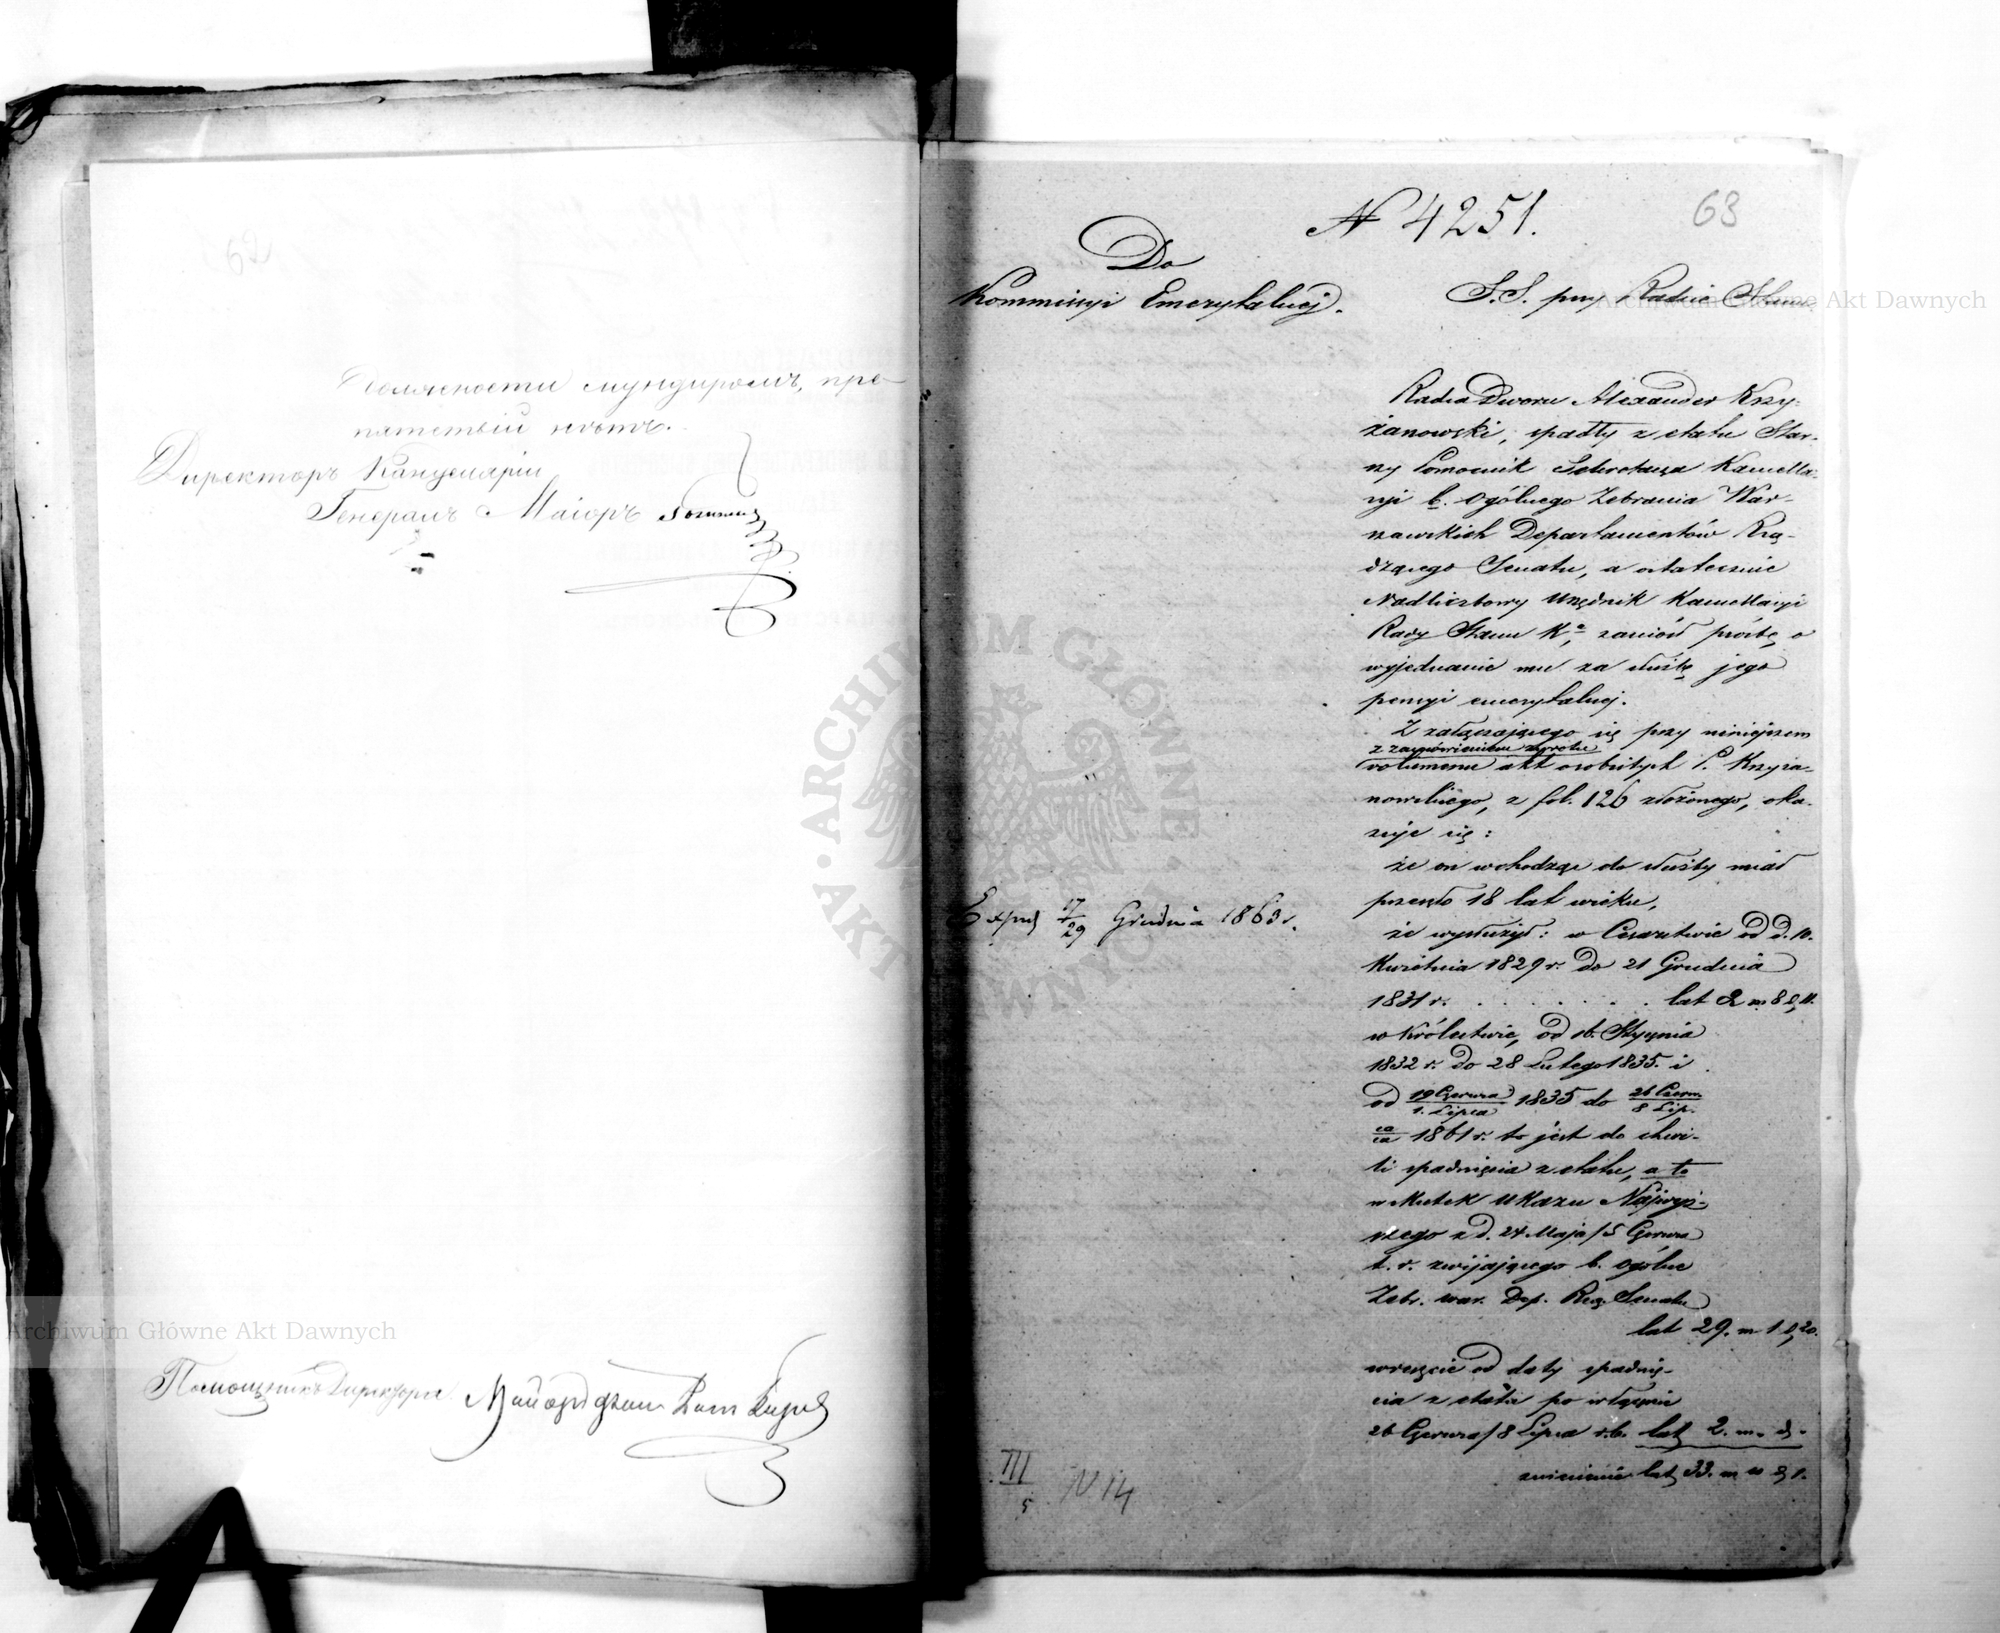 должности мундиромъ, пре-
пятствій нѣтъ.
Директоръ Канцеляріи
Генералъ Маіоръ
Помощникъ Директора
62
N 4251.
63
Do
Kommissyi Emerytalnej.
S. S. przy Radzie Stanu
Radca Dworu Alexander Krzy-
żanowski, spadły z etatu Star-
szy Pomocnik Sekretarza Kancella-
ryi b. Ogólnego Zebrania War-
szawskich Departamentów Rzą-
dzącego Senatu, a ostatecznie
Nadliczbowy Urzędnik Kancellaryi
Rady Stanu Kr, zaniósł prośbę o
wyjednanie mu za służbę jego
pensyi emerytalnej.
Z załączającego się przy niniejszem
z zapewnieniem zwrotu
volumenu akt osobistych P. Krzyża-
nowskiego, z fol. 126 złożonego, oka-
zuje się:
że on wchodząc do służby miał
przeszło 18 lat wieku,
że wysłużył: w Cesarstwie od d. 10.
Kwietnia 1829 r. do 21 Grudnia
1831 r. . . . . . . . lat 2 m. 8 d. 11.
w Królestwie, od 16. Stycznia
1832 r. do 28 Lutego 1835. i
od 19 Czerwca / 1. Lipca 1835 do 26 Czerw- / 8 Lip-
ca / ca 1861 r. to jest do chwi-
li spadnięcia z etatu, a to
w skutek Ukazu Najwyż-
szego z d. 24 Maja / 5 Czerwca
t. r. zwijającego b. Ogólne
Zebr. War. Dep. Rzą. Senatu
lat 29. m 1 d, 20.
wreszcie od daty spadnię-
cia z etatu po włącznie
26 Czerwca / 8 Lipca r. b. lat 2. m. - d. -
lat 33. m
Exped 17/29 Grudnia 1863 r.
III
5
N 14
ARCHIWUM GŁÓWNE AKT DAWNYCH
Archiwum Główne Akt Dawnych
Archiwum Główne Akt Dawnych